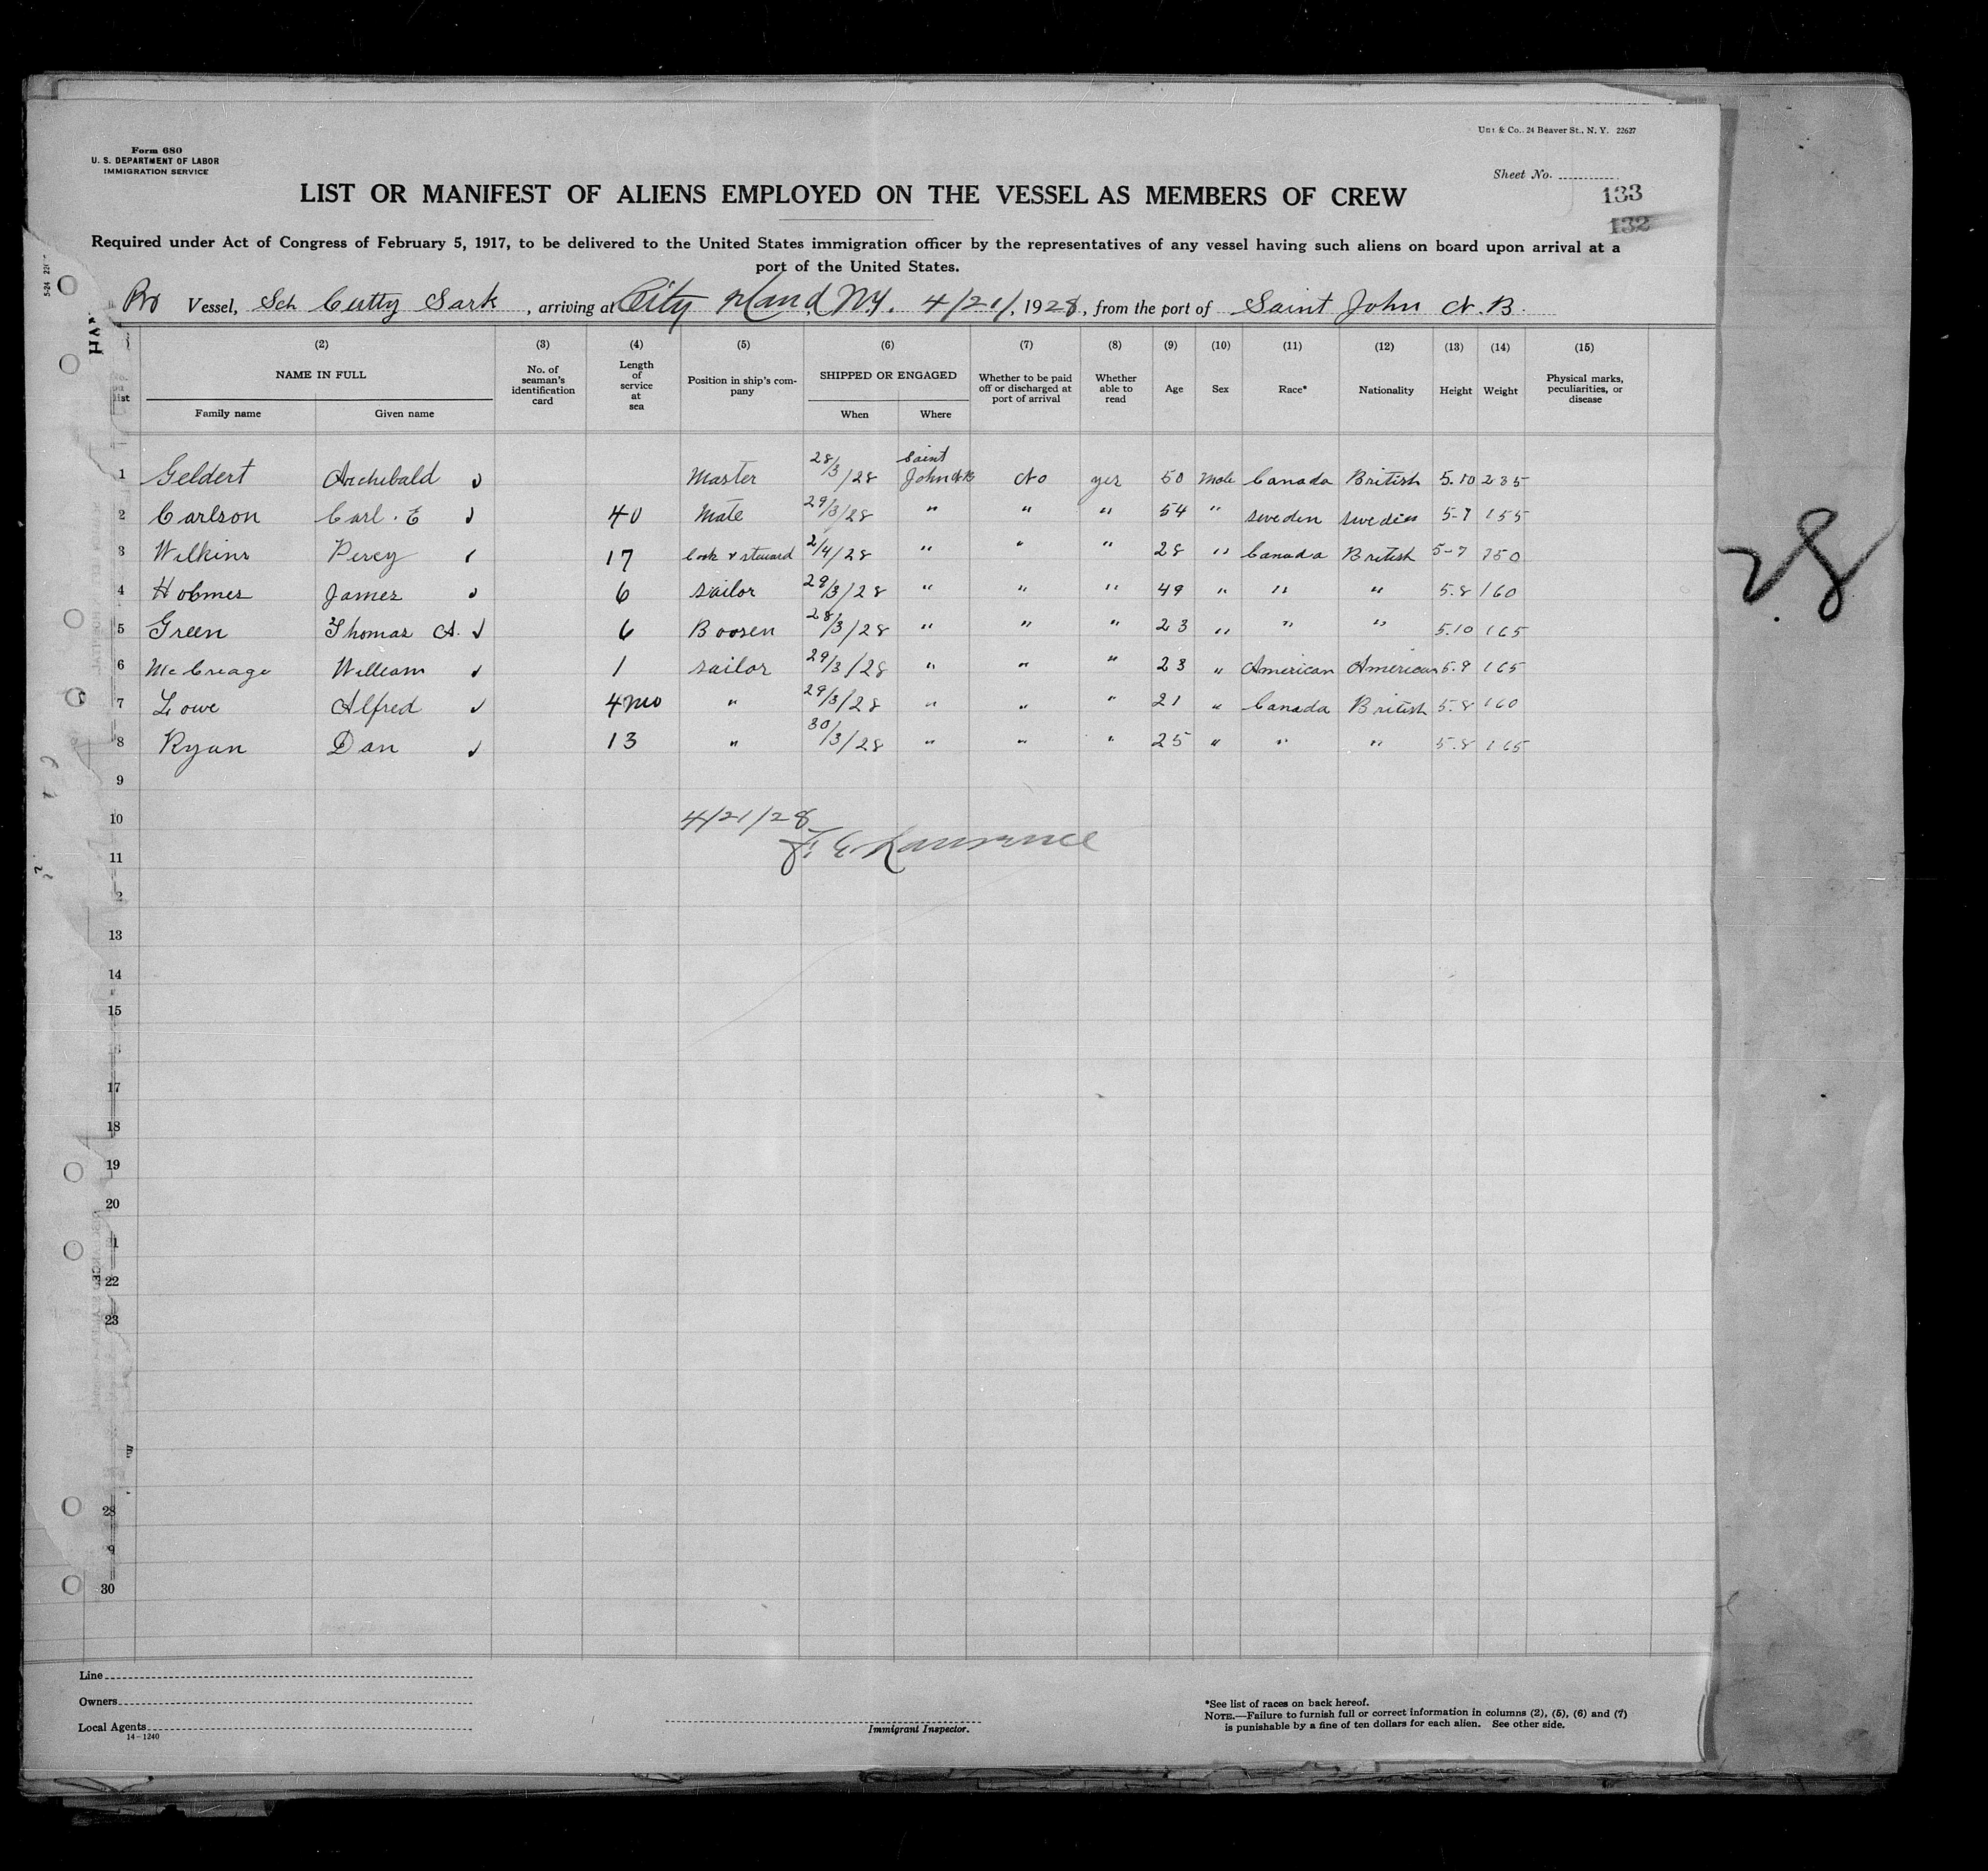 Form 680
U. S. DEPARTMENT OF LABOR
IMMIGRATION SERVICE
& Co., 24 Beaver St., N. Y. 22627
Sheet No.
133
132
LIST OR MANIFEST OF ALIENS EMPLOYED ON THE VESSEL AS MEMBERS OF CREW
Required under Act of Congress of February 5, 1917, to be delivered to the United States immigration officer by the representatives of any vessel having such aliens on board upon arrival at a
port of the United States.
Vessel, Sch Cutty Sark, arriving at City Island, N.Y. 4/21/, 1928, from the port of Saint John N.B.
(2) (3) (4) (5) (6) (7) (8) (9) (10) (11) (12) (13) (14) (15)
NAME IN FULL
Family name Given name
No. of seaman's identification card
Length of service at sea
Position in ship's company
SHIPPED OR ENGAGED
When Where
Whether to be paid off or discharged at port of arrival
Whether able to read
Age Sex Race* Nationality Height Weight
Physical marks, peculiarities, or disease
1 Geldert Archibald Master 28/3/28 Saint John N.B. No yes 50 Male Canada British 5.10 235
2 Carlson Carl. E 40 Mate 29/3/28 " " " 54 " Sweden Sweden 5-7 155
3 Wilkins Percy 17 Cook & steward 2/4/28 " " " 28 " Canada British 5-7 150
4 Holmes James 6 Sailor 29/3/28 " " " 49 " " " 5.8 160
5 Green Thomas A. 6 Boosen 28/3/28 " " " 23 " " " 5.10 165
6 William 1 sailor 29/3/28 " " " 23 " American American 5.9 165
7 Lowe Alfred 4 mo " 29/3/28 " " " 21 " Canada British 5.8 160
8 Ryan Dan 13 " 30/3/28 " " " 25 " " " 5.8 165
9
10
4/21/28
F. E. Lawrence
11
13
14
15
17
18
19
20
22
23
28
30
28
Line
Owners
Local Agents
14-1240
Immigrant Inspector.
*See list of races on back hereof.
NOTE.—Failure to furnish full or correct information in columns (2), (5), (6) and (7)
is punishable by a fine of ten dollars for each alien. See other side.